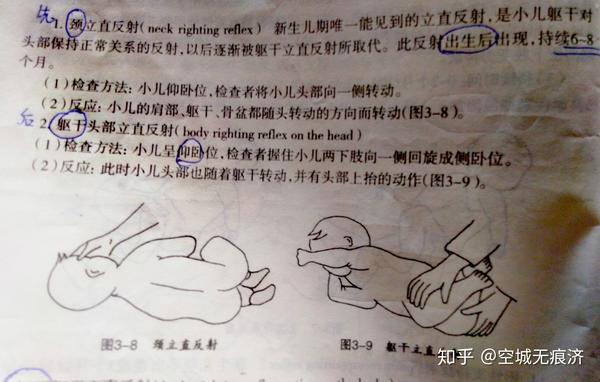 先1. 颈立直反射(neck righting reflex) 新生儿期唯一能见到的立直反射,是小儿躯干对
头部保持正常关系的反射,以后逐渐被躯干立直反射所取代。此反射出生后出现,持续6~8
个月。
(1)检查方法:小儿仰卧位,检查者将小儿头部向一侧转动。
(2)反应:小儿的肩部、躯干、骨盆都随头转动的方向而转动(图3-8)。
后2. 躯干头部立直反射(body righting reflex on the head)
(1)检查方法:小儿呈仰卧位,检查者握住小儿两下肢向一侧回旋成侧卧位。
(2)反应:此时小儿头部也随着躯干转动,并有头部上抬的动作(图3-9)。
图3-8 颈立直反射
图3-9 躯干立直
知乎 @空城无痕济